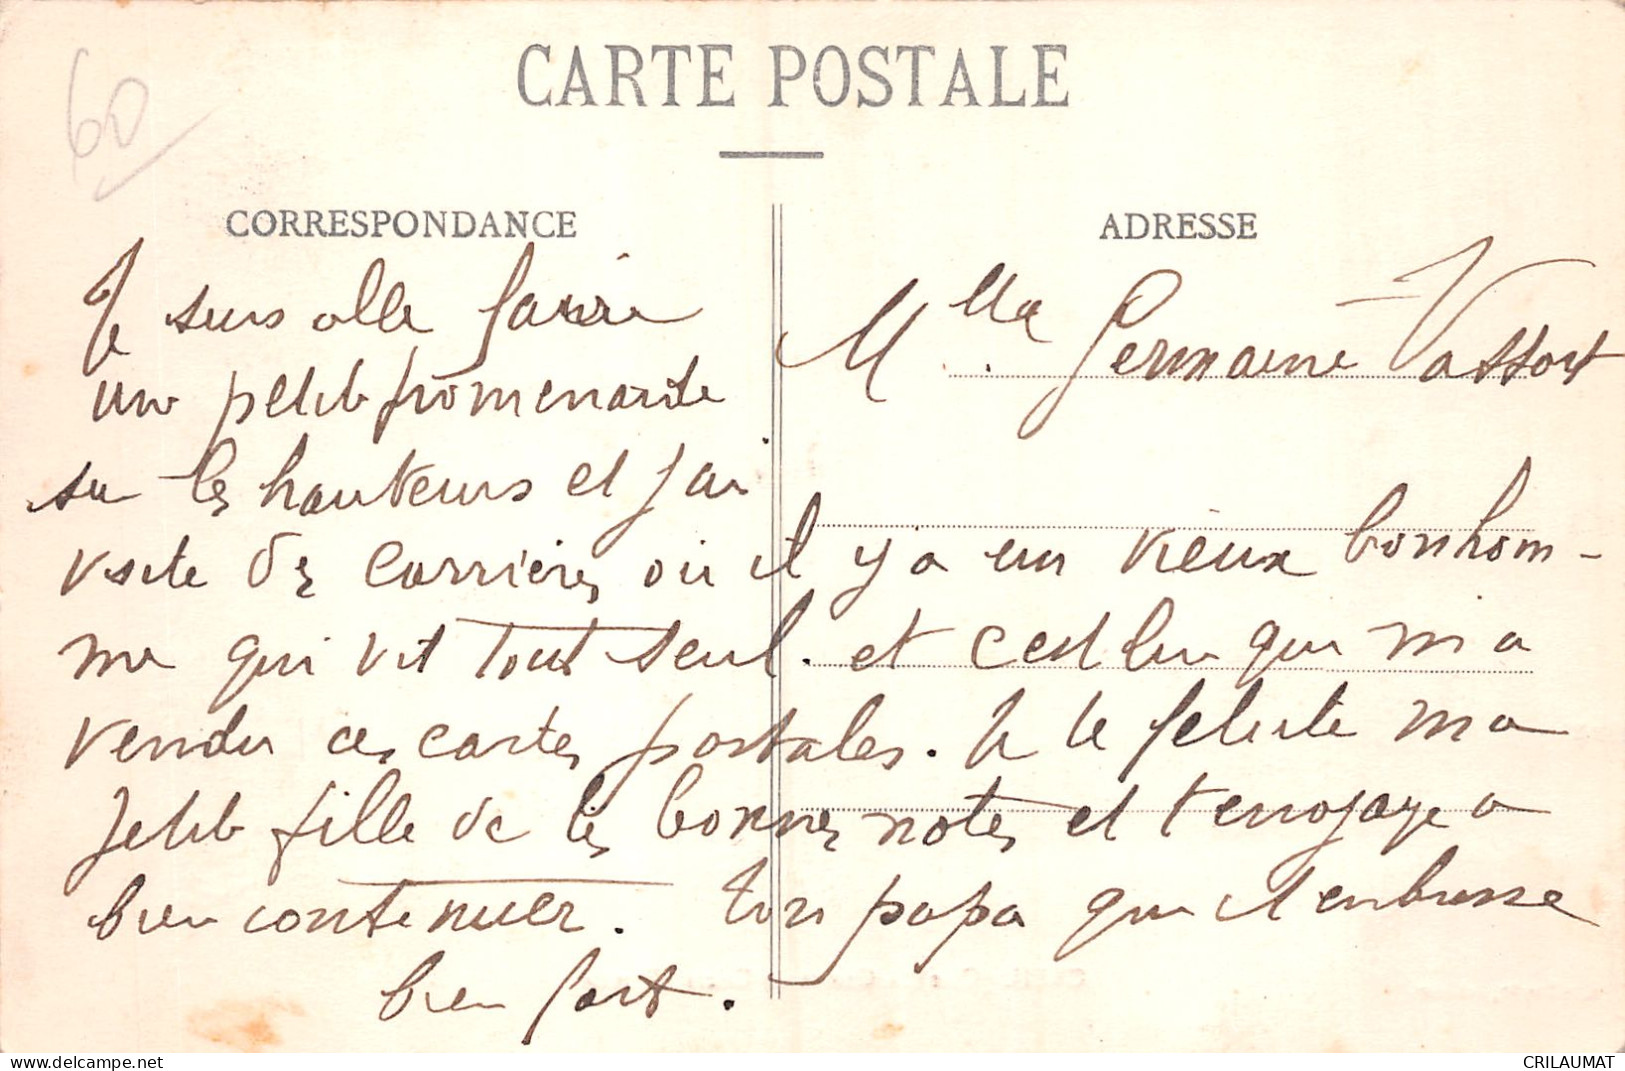 60
CARTE POSTALE
CORRESPONDANCE
ADRESSE
Mlle Germaine Vassort
Je suis allé faire
une petite promenade
sur les hauteurs et j'ai
visité des carrières où il y a un vieux bonhom-
me qui vit tout seul. et c'est lui qui m'a
vendu ces cartes postales. Je te félicite ma
petite fille de tes bonnes notes et t'engage a
bien continuer. Ton papa qui t'embrasse
bien fort.
delcampe.net
CRILAUMAT